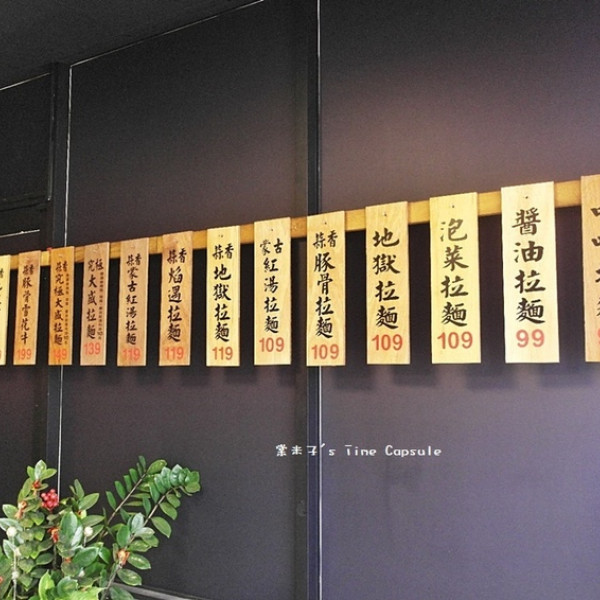 蒜香豚骨雪花牛
199
蒜香究極大咸拉麵
149
究極大咸拉麵
139
蒜香蒙古紅湯拉麵
119
蒜香焰遇拉麵
119
蒜香地獄拉麵
119
蒙古紅湯拉麵
109
蒜香豚骨拉麵
109
地獄拉麵
109
泡菜拉麵
109
醬油拉麵
99
Time Capsule